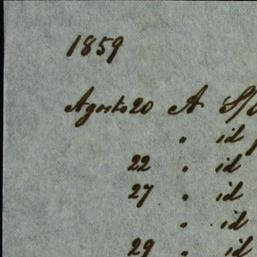 1859
Agosto 20 A S/
" id
22 " id
27 " id
" id
29 " id